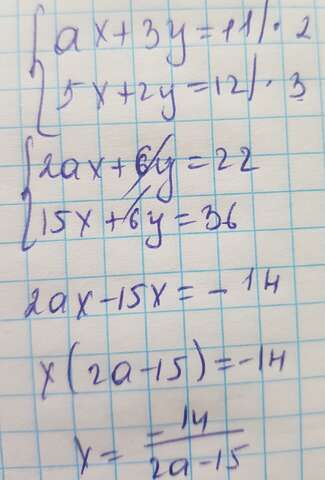 {ax+3y=11|·2
{5x+2y=12|·3
{2ax+6y=22
{15x+6y=36
2ax-15x=-14
x(2a-15)=-14
x=-14/2a-15